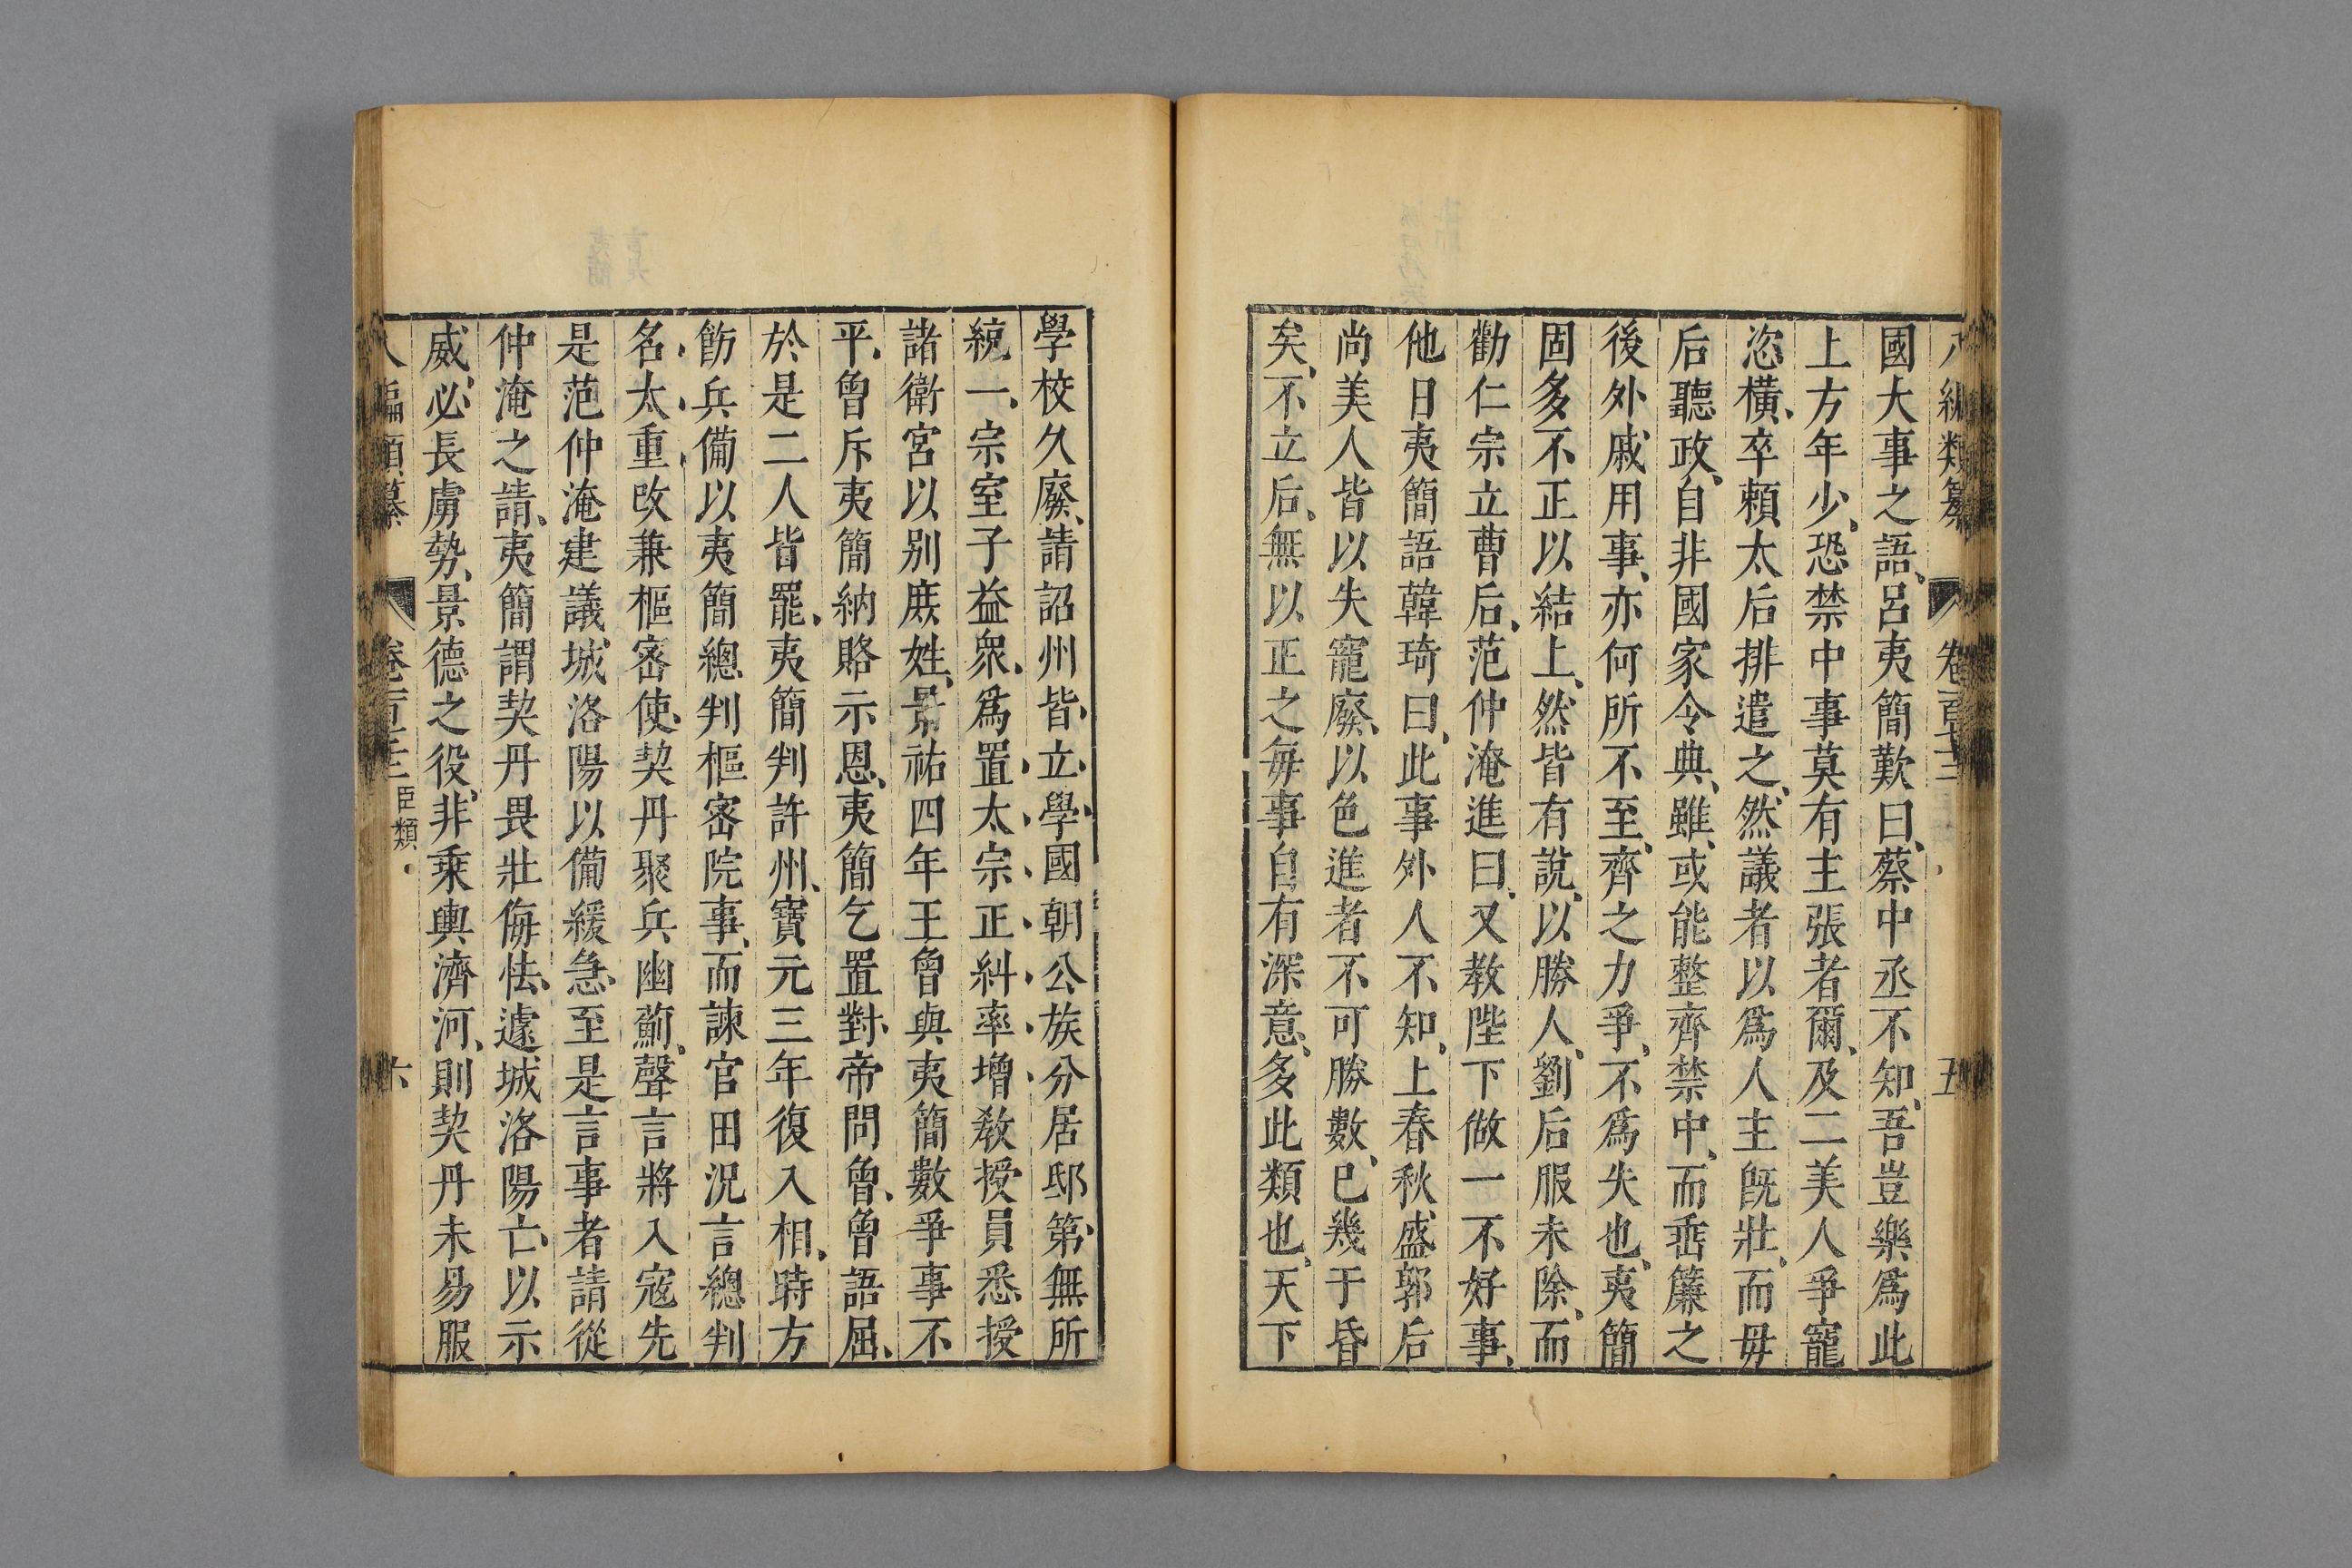 國大事之語、呂夷簡歎曰、蔡中丞不知、吾豈樂爲此
上方年少、恐禁中事莫有主張者爾、及二美人爭寵
恣橫、卒頼太后排遣之、然議者以爲人主旣壯、而毋
后聽政、自非國家令典、雖、或能整齊禁中、而垂簾之
後外戚用事、亦何所不至、齊之力爭、不爲失也、夷簡
固多不正以結上、然皆有說、以勝人、劉后服未除、而
勸仁宗立曹后、范仲淹進曰、又教陛下做一不好事、
他日夷簡語韓琦曰、此事外人不知、上春秋盛郭后
尚美人皆以失寵廢、以色進者不可勝數、已幾于昏
矣、不立后、無以正之每事自有深意、多此類也、天下
學校久廢、請詔州皆、立、學、國朝公族分居邸第、無所
統一、宗室子益衆、爲置、太、宗、正、糾、率、增、教授員悉授
諸衛官以别庶姓、景祐四年王曾與夷簡數爭事不
平、曾斥夷簡納賂示恩、夷簡乞置對、帝問曾、曾語屈、
於是二人皆罷、夷簡判許州、寶元三年復入相、時方
飭兵備以夷簡總判樞密院事、而諫官田況言總判
名、太、重、改兼樞密使、契丹聚兵幽薊、聲言將入寇先
是范仲淹建議城洛陽以備緩急、至是言事者請從
仲淹之請、夷簡謂契丹畏壯侮怯、遽城洛陽亡、以示
威、必長虜勢、景德之役、非乗輿濟河、則契丹未易服
編類纂 卷百三 臣類 六